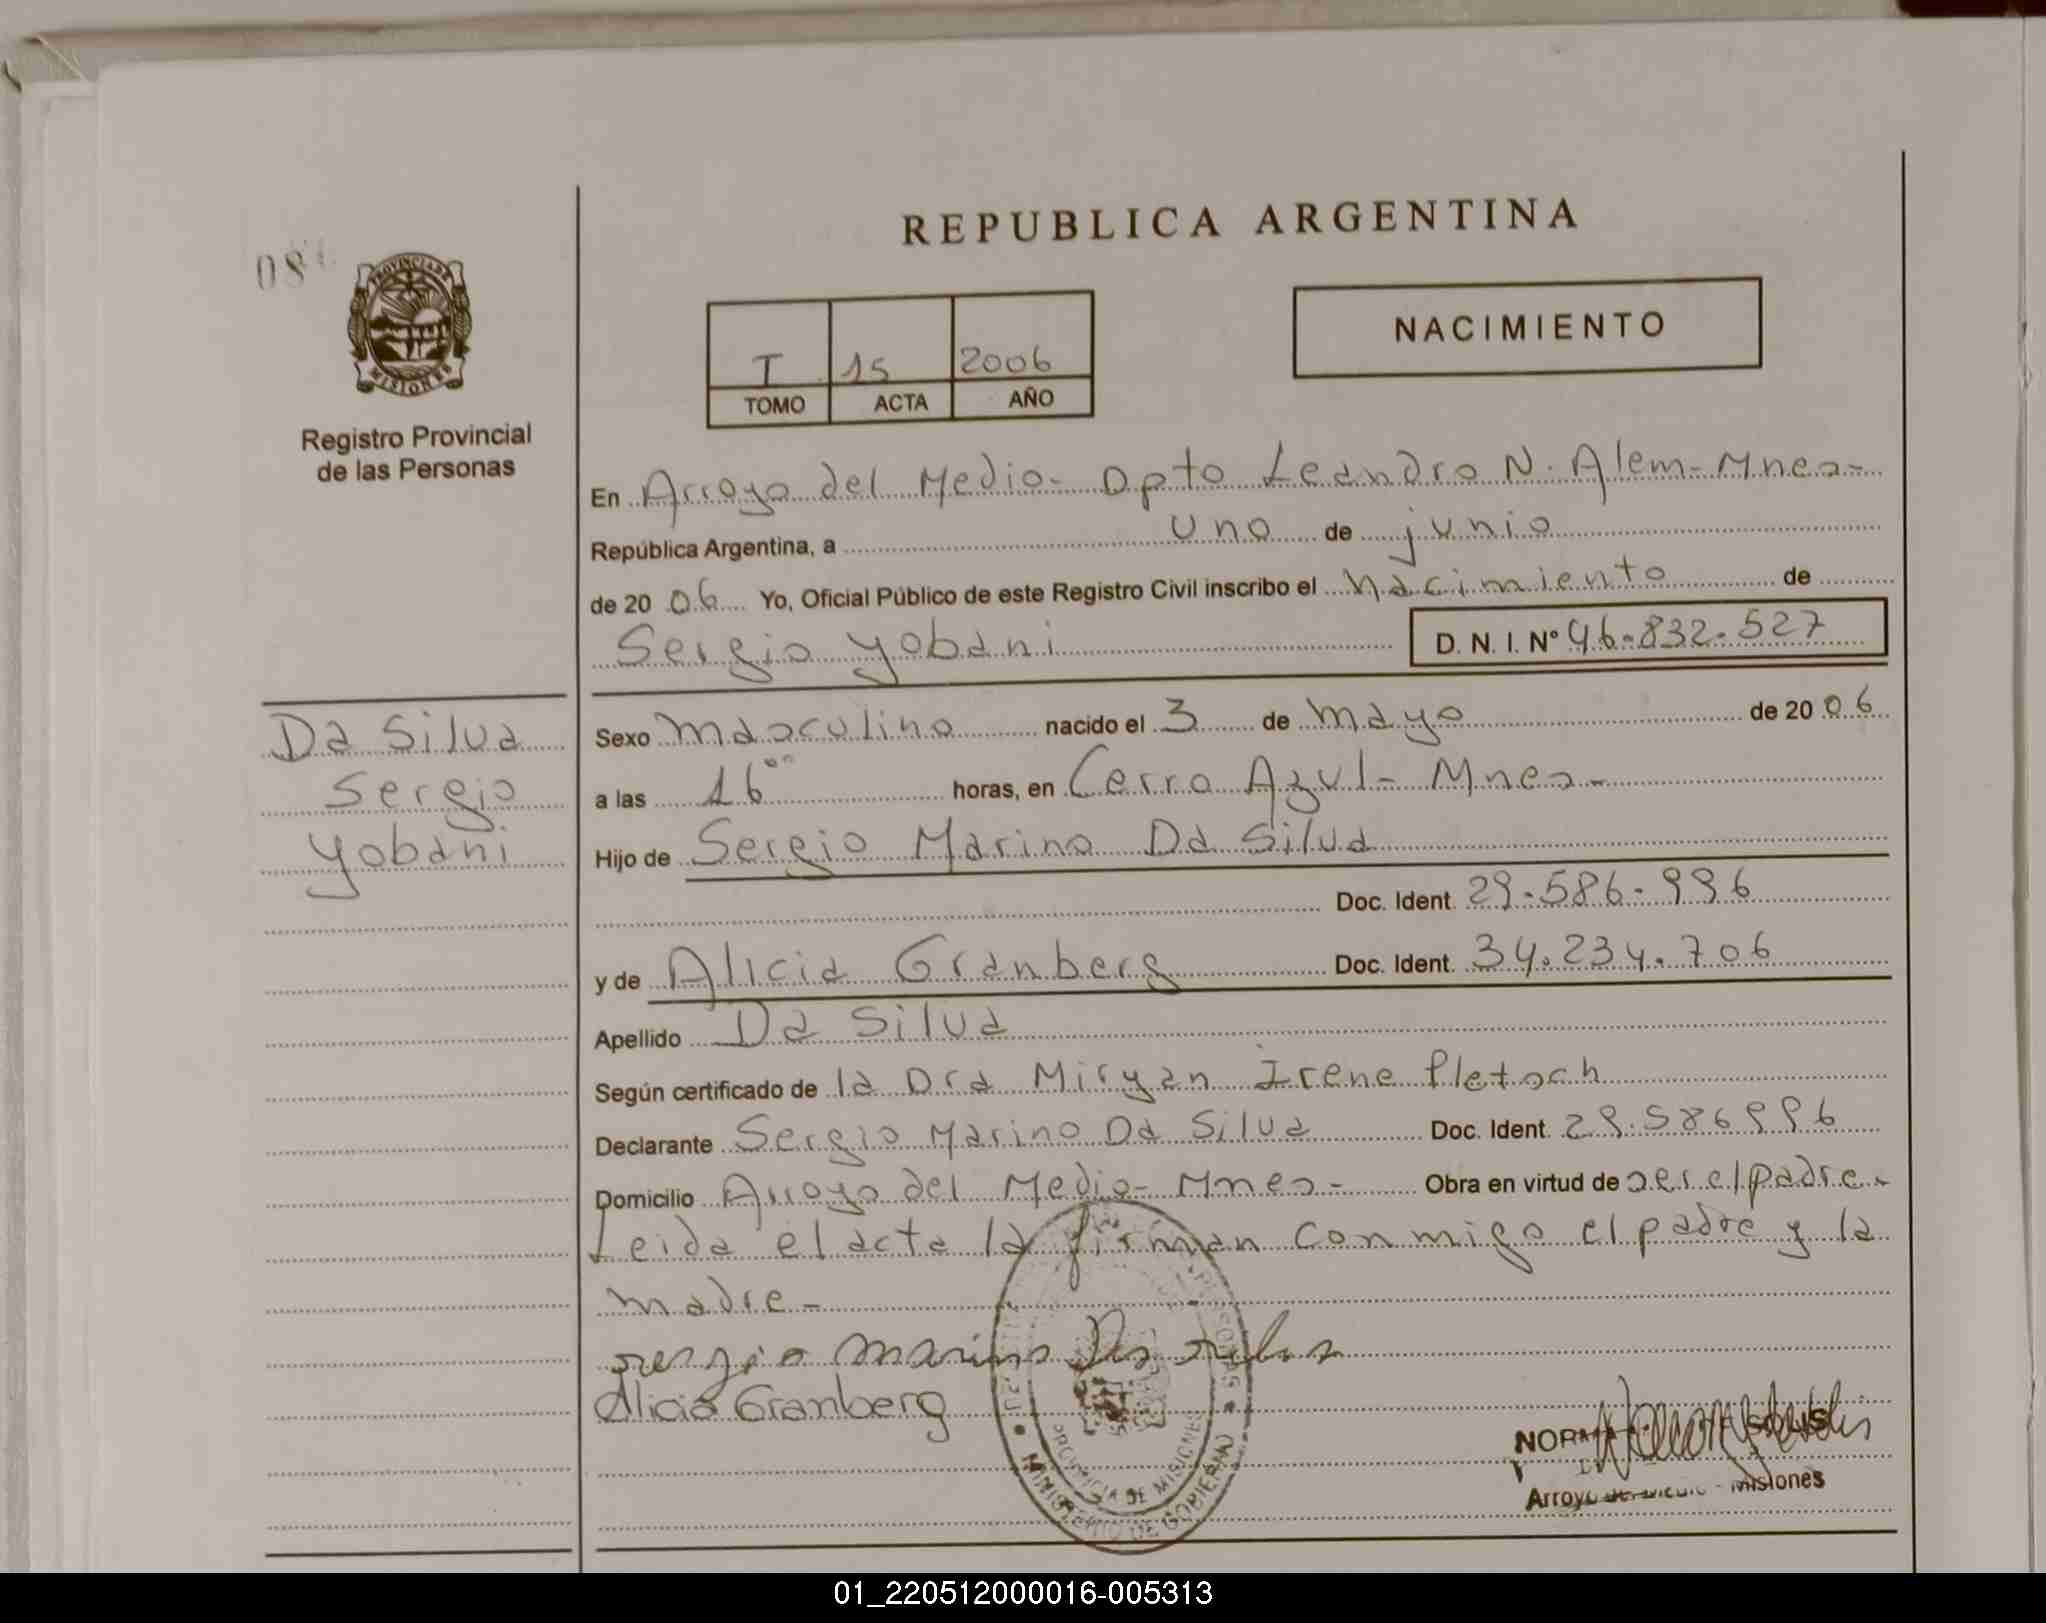 REPUBLICA ARGENTINA
08
PROVINCIA DE
MISIONES
Registro Provincial
de las Personas
T 15 2006
TOMO ACTA AÑO
NACIMIENTO
En Arroyo del Medio- Dpto Leandro N. Alem-Mnes-
República Argentina, a uno de junio
de 2006 Yo, Oficial Público de este Registro Civil inscribo el Nacimiento de
Sergio Yobani D. N. I. Nº 46-832-527
Da Silva
Sergio
Yobani
Sexo masculino nacido el 3 de mayo de 2006
a las 16ºº horas, en Cerro Azul- Mnes-
Hijo de Sergio Marino Da Silva
Doc. Ident. 29-586-996
y de Alicia Granberg Doc. Ident. 34.234.706
Apellido Da Silva
Según certificado de la Dra Miryan Irene Pletsch
Declarante Sergio Marino Da Silva Doc. Ident. 29.586996
Domicilio Arroyo del Medio- Mnes- Obra en virtud de ser el padre-
Leida el acta la firman conmigo el padre y la
madre-
sergio marino Da silva
Alicia Granberg
PROVINCIA DE MISIONES
MINISTERIO DE GOBIERNO
Arroyo del Medio - Misiones
01_220512000016-005313